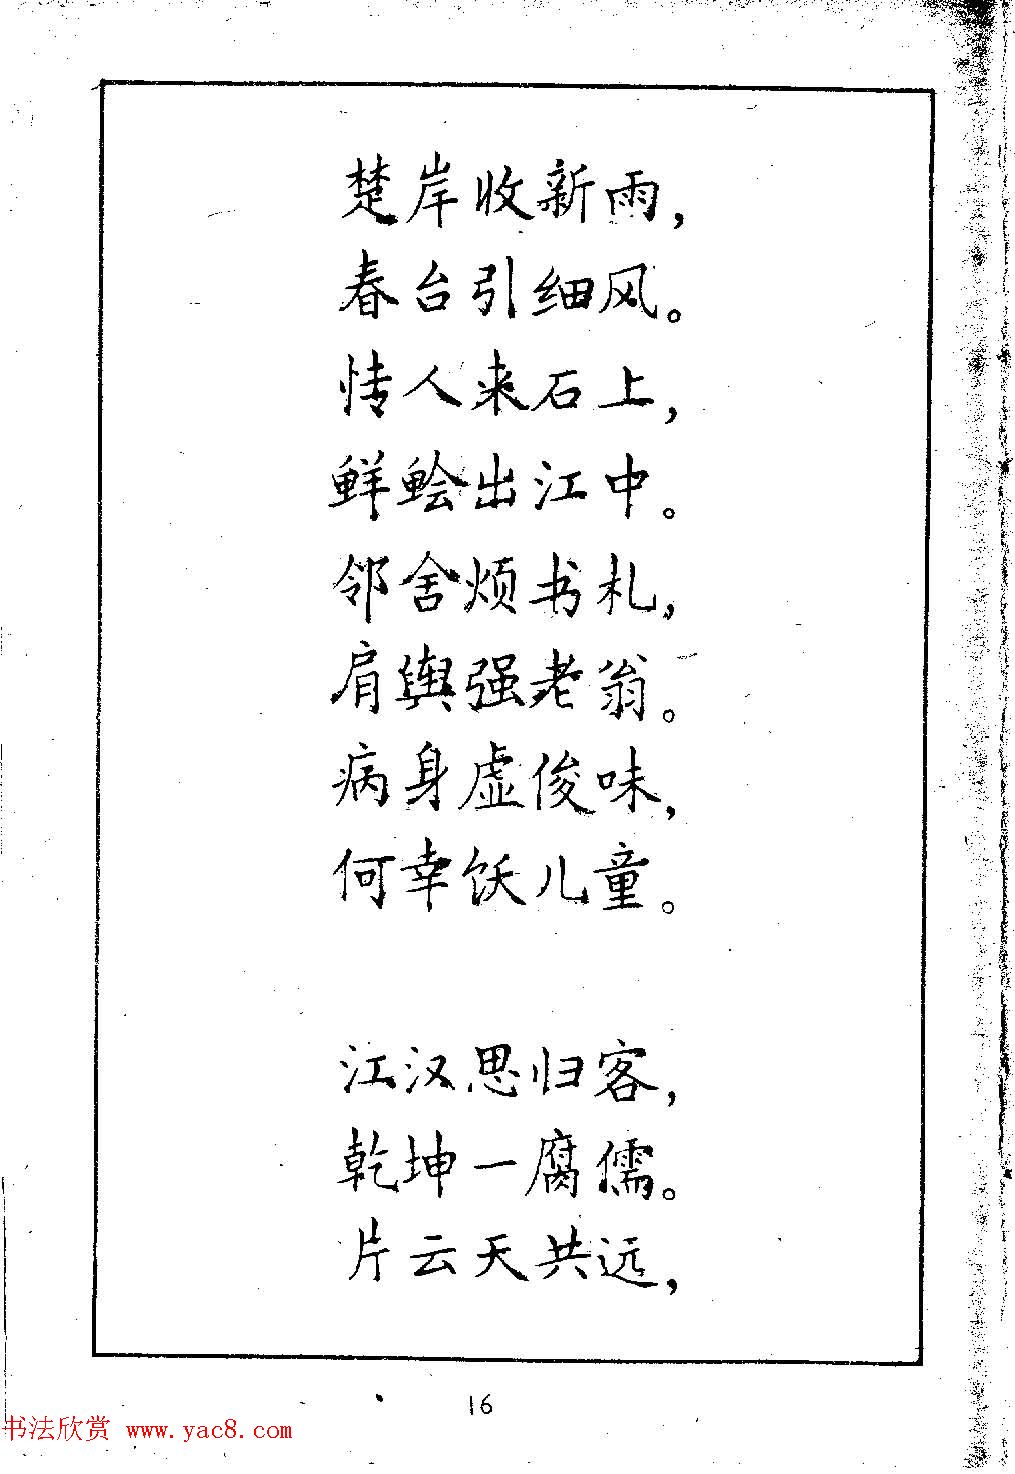 楚岸收新雨，
春台引细风。
情人来石上，
鲜鲙出江中。
邻舍烦书札，
肩舆强老翁。
病身虚俊味，
何幸饫儿童。
江汉思归客，
乾坤一腐儒。
片云天共远，
16
书法欣赏 www.yac8.com